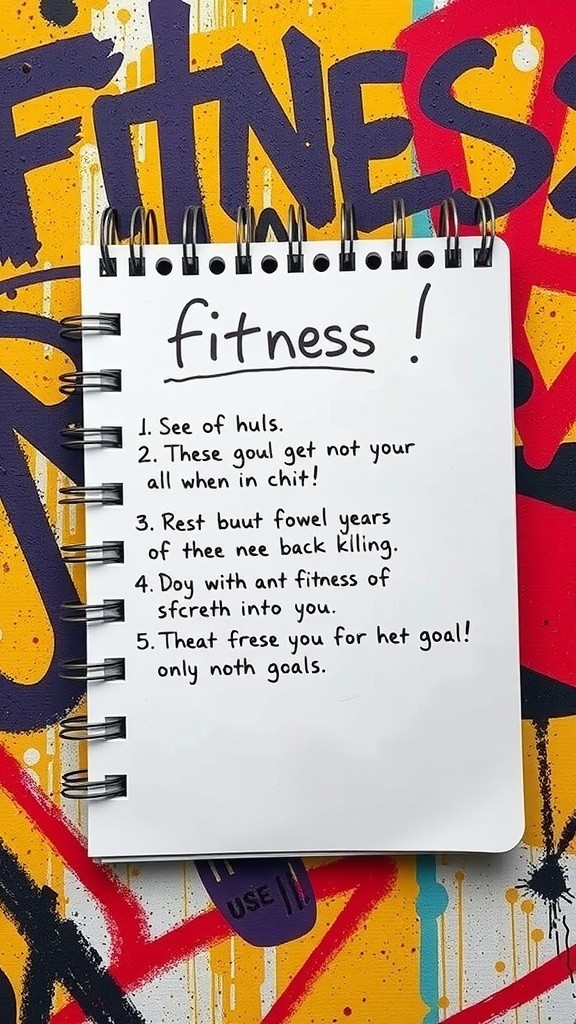 FITNESS
fitness !
1. See of huls.
2. These goul get not your
all when in chit!
3. Rest buut fowel years
of thee nee back klling.
4. Doy with ant fitness of
sfcreth into you.
5. Theat frese you for het goal!
only noth goals.
USE